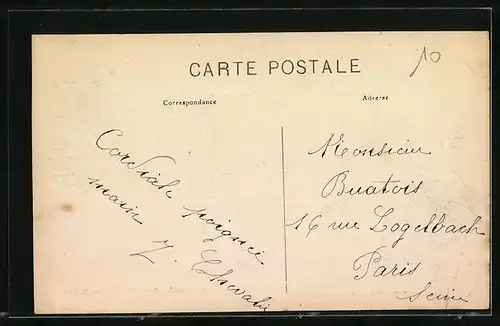 10
CARTE POSTALE
Correspondance
Adresse
Cordiale poignée
main
Monsieur
Buatois
16 rue Logelbach
Paris
Seine